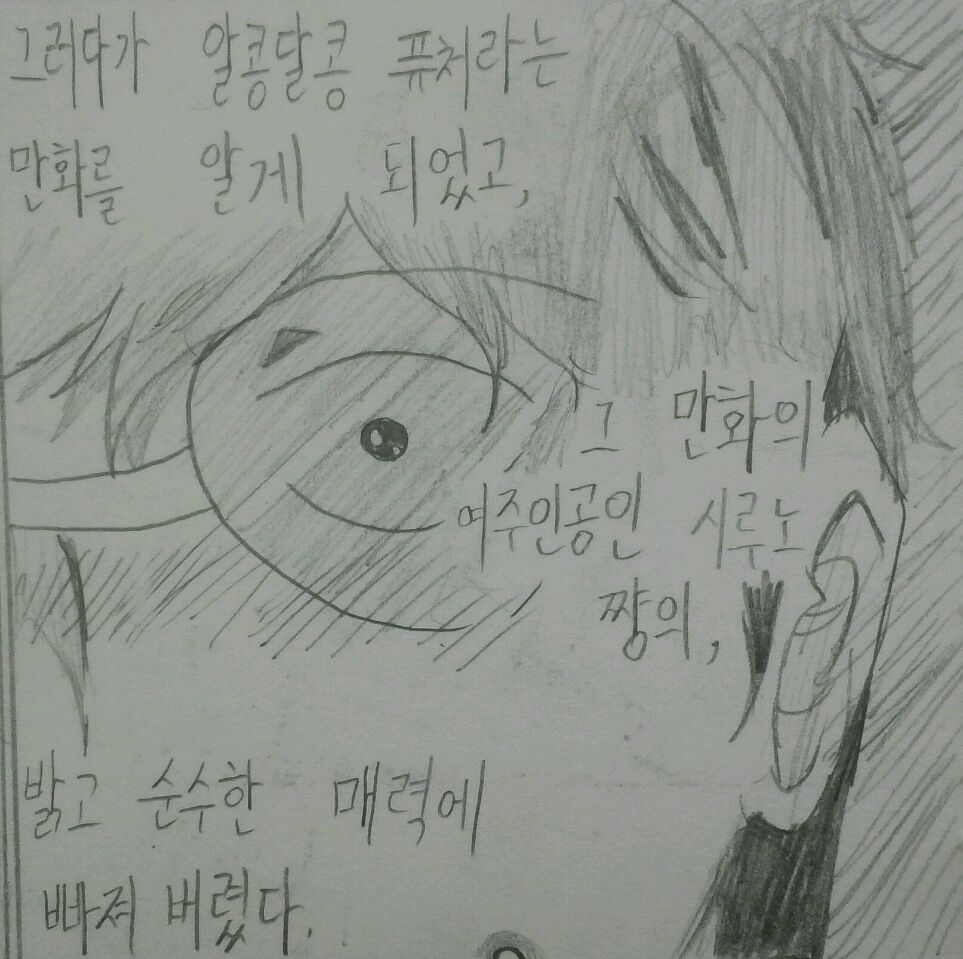 그러다가 알콩달콩 퓨처라는
만화를 알게 되었고,
그 만화의
여주인공인 시루노
쨩의,
밝고 순수한 매력에
빠져 버렸다.